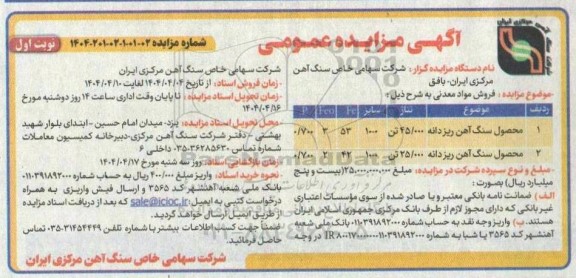 آگهـی مـزایـده عمـومـی
شماره مزایده ۱۴۰۴-۲۰۱-۰۲-۱۰۱-۰۲
نوبت اول
نام دستگاه مزایده گزار : شرکت سهامی خاص سنگ آهن مرکزی ایران- بافق
موضوع مزایده : فروش مواد معدنی به شرح ذیل:
ردیف موضوع تناژ سایز Fe Feo P
۱ محصول سنگ آهن ریز دانه ۴۵/۰۰۰ تن ۰-۱۰ ۵۳ ۳ ۰/۷۰۰
۲ محصول سنگ آهن ریز دانه ۲۵/۰۰۰ تن ۰-۱۰
مبلغ و نوع سپرده شرکت در مزایده: مبلغ ۲۵,۰۰۰,۰۰۰,۰۰۰ (بیست و پنج میلیارد ریال) بصورت :
الف ) ضمانت نامه بانکی معتبر و یا صادر شده از سوی مؤسسات اعتباری غیر بانکی که دارای مجوز لازم از طرف بانک مرکزی جمهوری اسلامی ایران هستند. ب) واریز وجه نقد به حساب شماره ۰۱۱۰۳۹۱۸۹۲۰۰۰ بانک ملی شعبه آهنشهر کد ۳۵۶۵ یا شبا به شماره
در وجه
شرکت سهامی خاص سنگ آهن مرکزی ایران
-زمان فروش اسناد: از تاریخ ۱۴۰۴/۰۴/۰۳ لغایت ۱۴۰۴/۰۴/۱۰
-زمان تحویل اسناد مزایده: تا پایان وقت اداری ساعت ۱۴ روز دوشنبه مورخ ۱۴۰۴/۰۴/۱۶
محل تحویل اسناد مزایده: یزد- میدان امام حسین - ابتدای بلوار شهید بهشتی - دفتر شرکت سنگ آهن مرکزی-دبیرخانه کمیسیون معاملات شماره تماس ۳۶۲۸۵۶۲۰-۰۳۵ داخلی ۶
زمان بازگشایی اسناد: روز سه شنبه مورخ ۱۴۰۴/۰۴/۱۷
نحوه خرید اسناد: واریز مبلغ ۴,۰۰۰,۰۰۰ ریال به حساب شماره ۰۱۱۰۳۹۱۸۹۲۰۰۰ بانک ملی شعبه آهنشهر کد ۳۵۶۵ و ارسال فیش واریزی به همراه درخواست کتبی به ایمیل: sale@icioc.ir که بعد از دریافت اسناد مزایده از طریق ایمیل ارسال خواهد گردید.
ضمنا جهت کسب اطلاعات بیشتر با شماره تلفن ۳۱۴۵۴۴۴۹-۰۳۵ تماس حاصل فرمائید.
شرکت سهامی خاص سنگ آهن مرکزی ایران